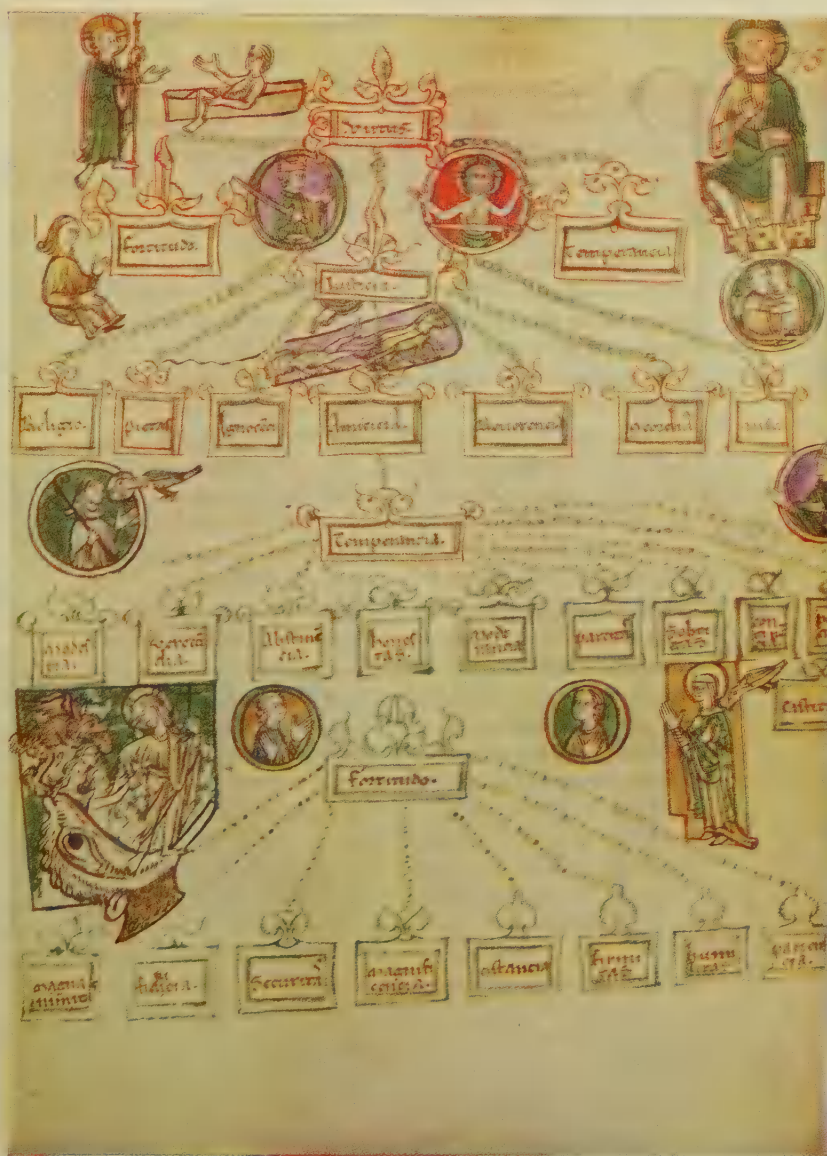 Virtus.
fortitudo.
Temperancia
Iusticia.
Religio.
pietas
Amicicia.
Reverencia
Temperancia.
modes
tia.
verecu̅
dia.
Abstine̅
cia.
hones
tas.
mode
rancia
parcitas
sobri
etas
con
Castit
fortitudo.
magna
nimit
fiducia.
Securita̅
magnifi
cencia.
c̅stancia
firmi
tas
humi
litas
pacien
cia.